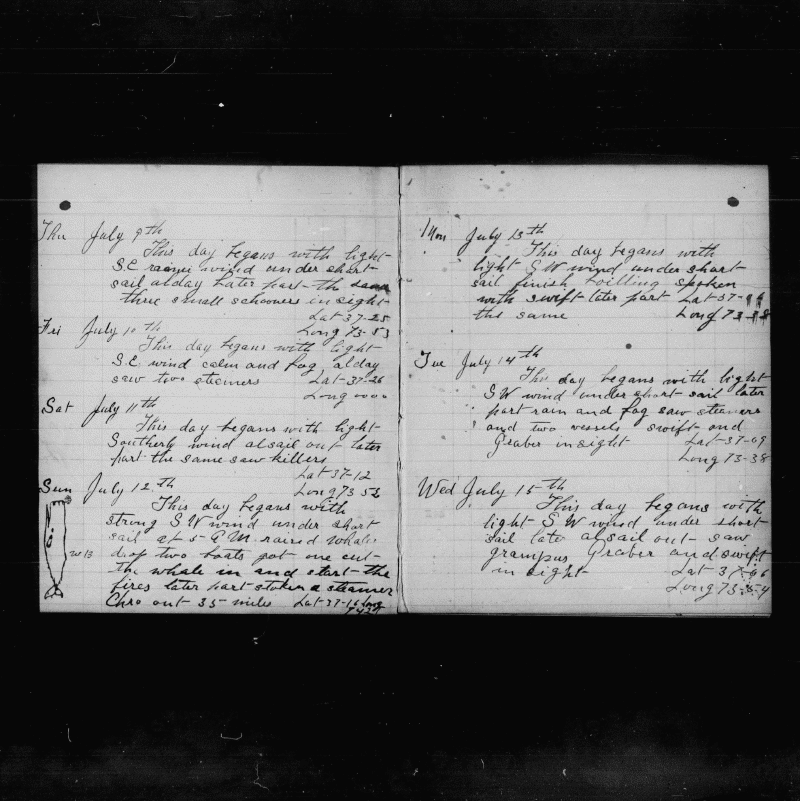 Thu July 9th
This day begans with light
S.E. wind under short
sail alday later part the same
three small schooners in sight
Lat 37-25
Long 73-53
Fri July 10th
This day begans with light
S.E. wind calm and fog alday
saw two steamers Lat 37-26
Long 0000
Sat July 11th
This day begans with light
Southerly wind alsail out later
part the same saw killers
Lat 37-12
Long 73 53
Sun July 12th
This day begans with
strong S W wind under short
sail at 5 raised whales
drop two boats got one cut
the whale in and start the
fires later part a steamer
Chro out 35 miles Lat 37-16 Long
Mon July 13th
This day begans with
light S W wind under short
sail finish boilling spoken
with swift later part Lat 37-
the same Long 73
Tue July 14th
This day begans with light
S W wind under short sail later
part rain and fog saw steamers
and two vessels swift and
Graber in sight Lat 37-09
Long 73-38
Wed July 15th
This day begans with
light S W wind under short
sail late alsail out saw
grampus Graber and swift
in sight Lat 37-06
Long 73-54